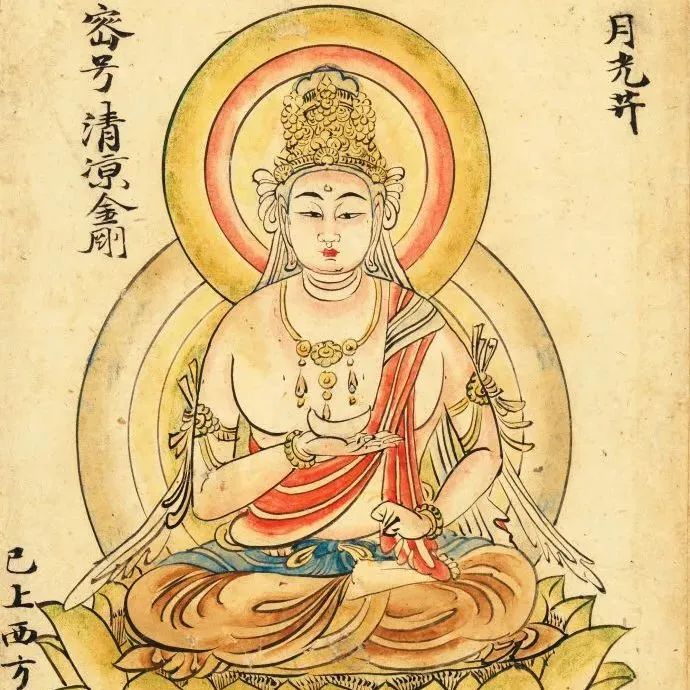 月光𦬇
密号清凉金剛
已上西方